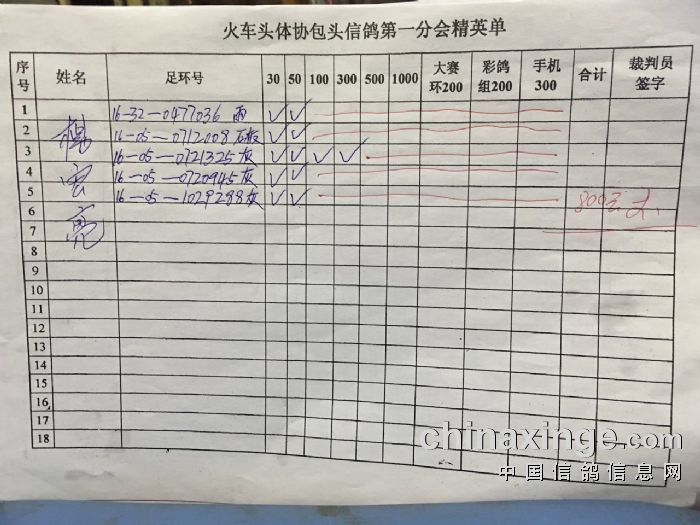 火车头体协包头信鸽第一分会精英单
序号 姓名 足环号 30 50 100 300 500 1000 大赛环200 彩鸽组200 手机300 合计 裁判员签字
1 16-32-0477036 雨 ✓ ✓
2 16-05-0712008 石板 ✓ ✓
3 16-05-0721325 灰 ✓ ✓ ✓ ✓
4 16-05-0720945 灰 ✓ ✓
5 16-05-1029288 灰 ✓ ✓ 800元
6
7
8
9
10
11
12
13
14
15
16
17
18
chinaxinge.com
中国信鸽信息网